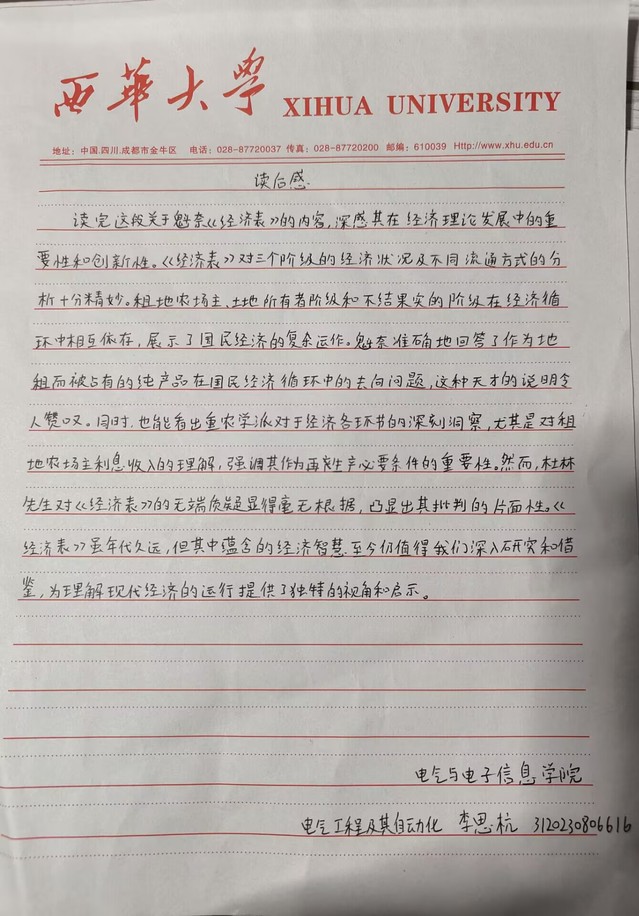 西華大學 XIHUA UNIVERSITY
地址：中国.四川.成都市金牛区 电话：028-87720037 传真：028-87720200 邮编：610039 Http://www.xhu.edu.cn
读后感
读完这段关于魁奈《经济表》的内容，深感其在经济理论发展中的重
要性和创新性。《经济表》对三个阶级的经济状况及不同流通方式的分
析十分精妙。租地农场主、土地所有者阶级和不结果实的阶级在经济循
环中相互依存，展示了国民经济的复杂运作。魁奈准确地回答了作为地
租而被占有的纯产品在国民经济循环中的去向问题，这种天才的说明令
人赞叹。同时，也能看出重农学派对于经济各环节的深刻洞察，尤其是对租
地农场主利息收入的理解，强调其作为再生产必要条件的重要性。然而，杜林
先生对《经济表》的无端质疑显得毫无根据，凸显出其批判的片面性。《
经济表》虽年代久远，但其中蕴含的经济智慧至今仍值得我们深入研究和借
鉴，为理解现代经济的运行提供了独特的视角和启示。
电气与电子信息学院
电气工程及其自动化 李思杭 3120230806616